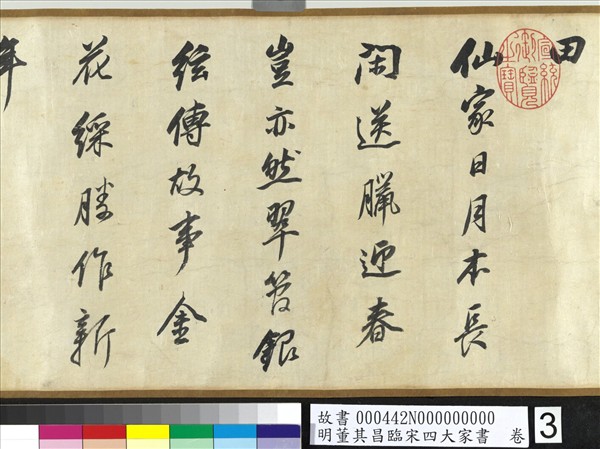 田
仙家日月本長
閑送臘迎春
豈亦然翠管銀
傳故事金
花綵勝作新
年
宣統
御覽
之寶
故書 000442N000000000
明董其昌臨宋四大家書 卷
3